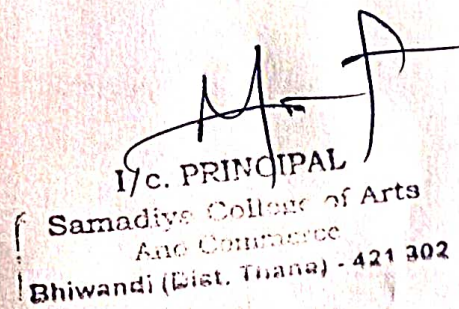 I/c. PRINCIPAL
Samadiya College of Arts
And Commerce
Bhiwandi (Dist. Thana) - 421 302